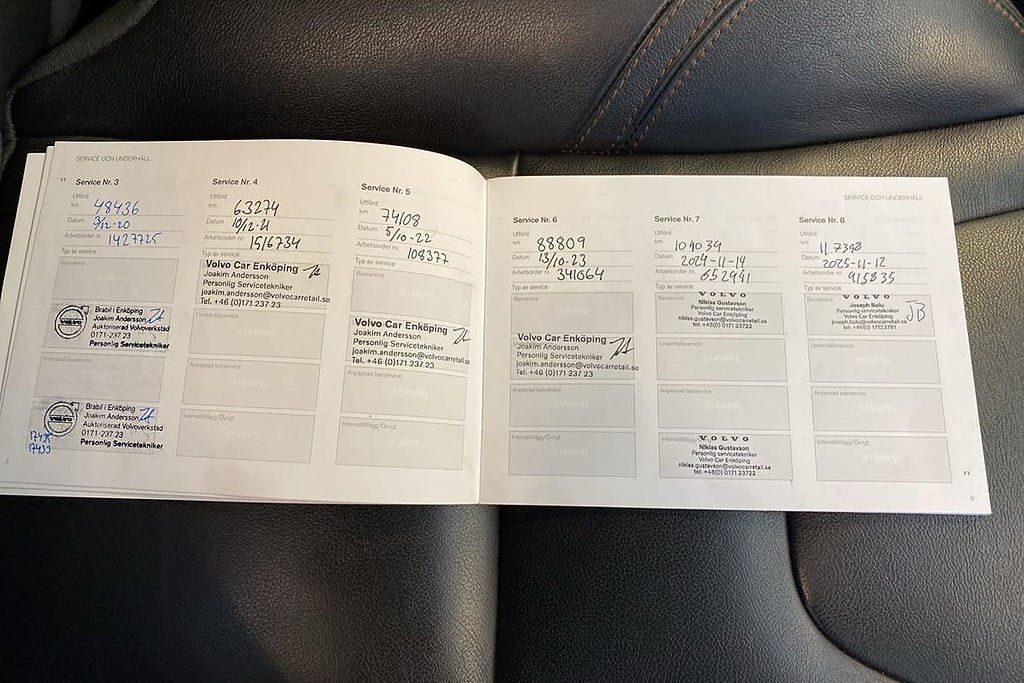 SERVICE OCH UNDERHÅLL
Service Nr. 3
Utförd
km 48436
Datum 3/12-20
Arbetsorder nr. 1427725
Typ av service
Basservice
Brabil i Enköping
Joakim Andersson
Auktoriserad Volvoverkstad
0171-237 23
Personlig Servicetekniker
Anpassad basservice
VOLVO
Brabil i Enköping
Joakim Andersson
Auktoriserad Volvoverkstad
0171-237 23
Personlig Servicetekniker
17435
Service Nr. 4
Utförd
km 63274
Datum 10/12-21
Arbetsorder nr. 1516734
Typ av service
Volvo Car Enköping
Joakim Andersson
Personlig Servicetekniker
joakim.andersson@volvocarretail.se
Tel. +46 (0)171 237 23
Underhållsservice
STÄMPEL
Anpassad basservice
STÄMPEL
Intervalltillägg/Övrigt
STÄMPEL
Service Nr. 5
Utförd
km 74108
Datum 5/10-22
Arbetsorder nr. 108377
Typ av service
Basservice
STÄMPEL
Volvo Car Enköping
Joakim Andersson
Personlig Servicetekniker
joakim.andersson@volvocarretail.se
Tel. +46 (0)171 237 23
Anpassad basservice
STÄMPEL
Intervalltillägg/Övrigt
STÄMPEL
SERVICE OCH UNDERHÅLL
Service Nr. 6
Utförd
km 88809
Datum 13/10-23
Arbetsorder nr. 341664
Typ av service
Basservice
STÄMPEL
Volvo Car Enköping
Joakim Andersson
Personlig Servicetekniker
joakim.andersson@volvocarretail.se
Tel. +46 (0)171 237 23
Anpassad basservice
STÄMPEL
Intervalltillägg/Övrigt
STÄMPEL
Service Nr. 7
Utförd
km 109039
Datum 2024-11-14
Arbetsorder nr. 652941
Typ av service
VOLVO
Niklas Gustavson
Personlig servicetekniker
Volvo Car Enköping
niklas.gustavson@volvocarretail.se
tel: +46(0) 0171 23722
Underhållsservice
STÄMPEL
Anpassad basservice
STÄMPEL
Intervalltillägg/Övrigt
VOLVO
Niklas Gustavson
Personlig servicetekniker
Volvo Car Enköping
niklas.gustavson@volvocarretail.se
tel: +46(0) 0171 23722
Service Nr. 8
Utförd
km 117398
Datum 2025-11-12
Arbetsorder nr. 915835
Typ av service
VOLVO
Joseph Bolu
Personlig servicetekniker
Volvo Car Enköping
joseph.bolu@volvocarretail.se
JB
Underhållsservice
STÄMPEL
Anpassad basservice
STÄMPEL
Intervalltillägg/Övrigt
STÄMPEL
9